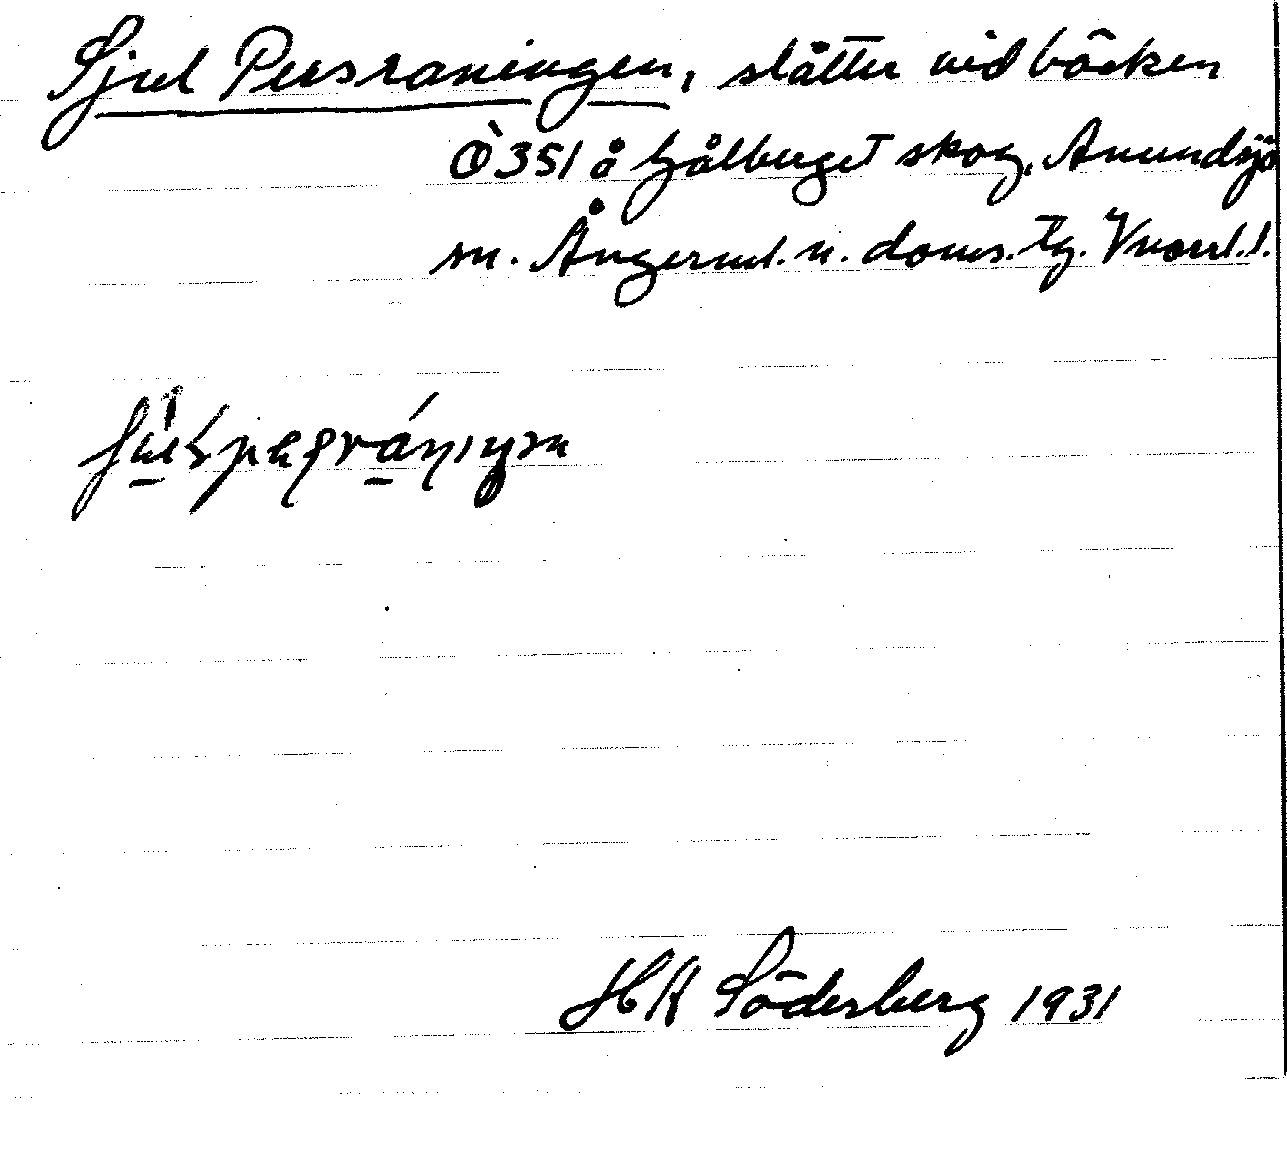 Sjul Persraningen, slåtter vid bäcken
Ö351 å Hålberget skog, Anundsjö
sn. Ångerml. n. doms. tg.
HK Söderberg 1931